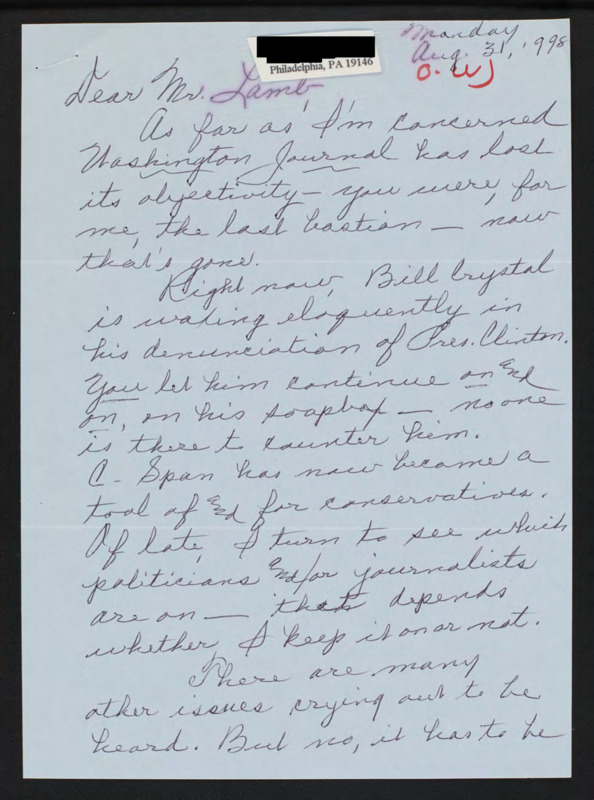 Monday
Aug. 31, '998
O. WJ
Philadelphia, PA 19146
Dear Mr. Lamb
As far as I'm concerned
Washington Journal has lost
its objectivity — you were, for
me, the last bastion — now
that's gone.
Right now, Bill Crystal
is waxing eloquently in
his denunciation of Pres. Clinton.
You let him continue on and
on, on his soapbox — no one
is there to counter him.
C-Span has now become a
tool of and for conservatives.
Of late, I turn to see which
politicians and/or journalists
are on — that depends
whether I keep it on or not.
There are many
other issues crying out to be
heard. But no, it has to be